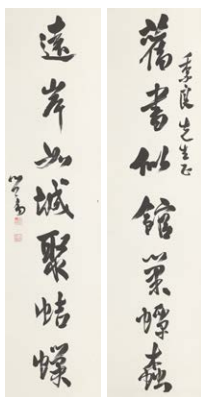 季良先生正
舊書似館巢蟫蠹
遠岸如城聚蛣
心畬